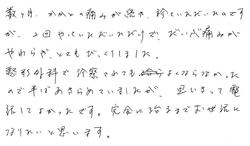 数ヶ月、かかとの痛みが続き、診ていただいたのですが
2回やっていただいただけで、だいぶ痛みが
やわらぎ、とてもびっくりしました。
整形外科で診察してみても治らなくならなかった
ので半ばあきらめていましたが、思いきって電
話してよかったです。完全に治るまでお世話に
なりたいと思います。